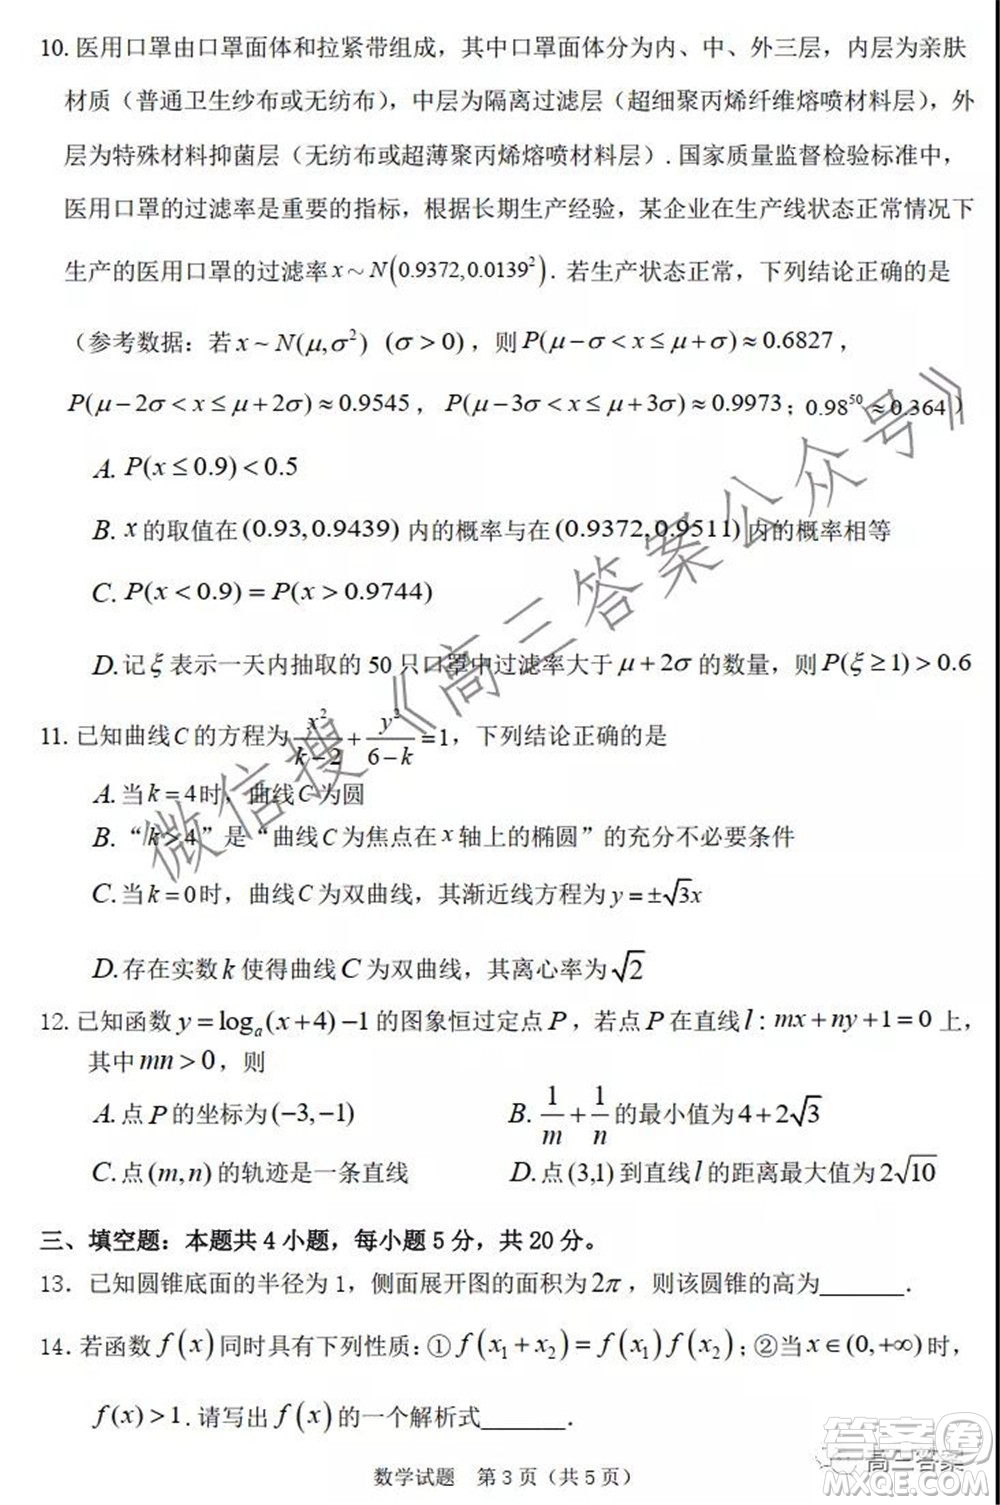 10. 医用口罩由口罩面体和拉紧带组成，其中口罩面体分为内、中、外三层，内层为亲肤
材质（普通卫生纱布或无纺布），中层为隔离过滤层（超细聚丙烯纤维熔喷材料层），外
层为特殊材料抑菌层（无纺布或超薄聚丙烯熔喷材料层）. 国家质量监督检验标准中，
医用口罩的过滤率是重要的指标，根据长期生产经验，某企业在生产线状态正常情况下
生产的医用口罩的过滤率 x ~ N(0.9372,0.0139²). 若生产状态正常，下列结论正确的是
（参考数据：若 x ~ N(μ,σ²) (σ>0)，则 P(μ−σ<x≤μ+σ)≈0.6827，
P(μ−2σ<x≤μ+2σ)≈0.9545，P(μ−3σ<x≤μ+3σ)≈0.9973；0.98⁵⁰≈0.364）
A. P(x≤0.9)<0.5
B. x 的取值在 (0.93,0.9439) 内的概率与在 (0.9372,0.9511) 内的概率相等
C. P(x<0.9)=P(x>0.9744)
D. 记 ξ 表示一天内抽取的 50 只口罩中过滤率大于 μ+2σ 的数量，则 P(ξ≥1)>0.6
11. 已知曲线 C 的方程为 x²/(k−2) + y²/(6−k) = 1，下列结论正确的是
A. 当 k=4 时，曲线 C 为圆
B. “k>4”是“曲线 C 为焦点在 x 轴上的椭圆”的充分不必要条件
C. 当 k=0 时，曲线 C 为双曲线，其渐近线方程为 y=±√3x
D. 存在实数 k 使得曲线 C 为双曲线，其离心率为 √2
12. 已知函数 y=logₐ(x+4)−1 的图象恒过定点 P，若点 P 在直线 l：mx+ny+1=0 上，
其中 mn>0，则
A. 点 P 的坐标为 (−3,−1) B. 1/m + 1/n 的最小值为 4+2√3
C. 点 (m,n) 的轨迹是一条直线 D. 点 (3,1) 到直线 l 的距离最大值为 2√10
三、填空题：本题共 4 小题，每小题 5 分，共 20 分。
13. 已知圆锥底面的半径为 1，侧面展开图的面积为 2π，则该圆锥的高为_______.
14. 若函数 f(x) 同时具有下列性质：① f(x₁+x₂)=f(x₁)f(x₂)；②当 x∈(0,+∞) 时，
f(x)>1. 请写出 f(x) 的一个解析式_______.
数学试题 第 3 页（共 5 页）
微信搜《高三答案公众号》
高三答案
答案圈
MXQE.COM